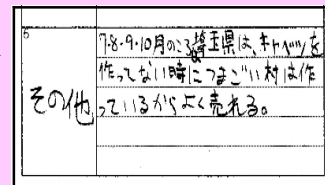 5
その他
7.8.9.10月のころ埼玉県は、キャベツを
作ってない時につまごい村は作
っているからよく売れる。